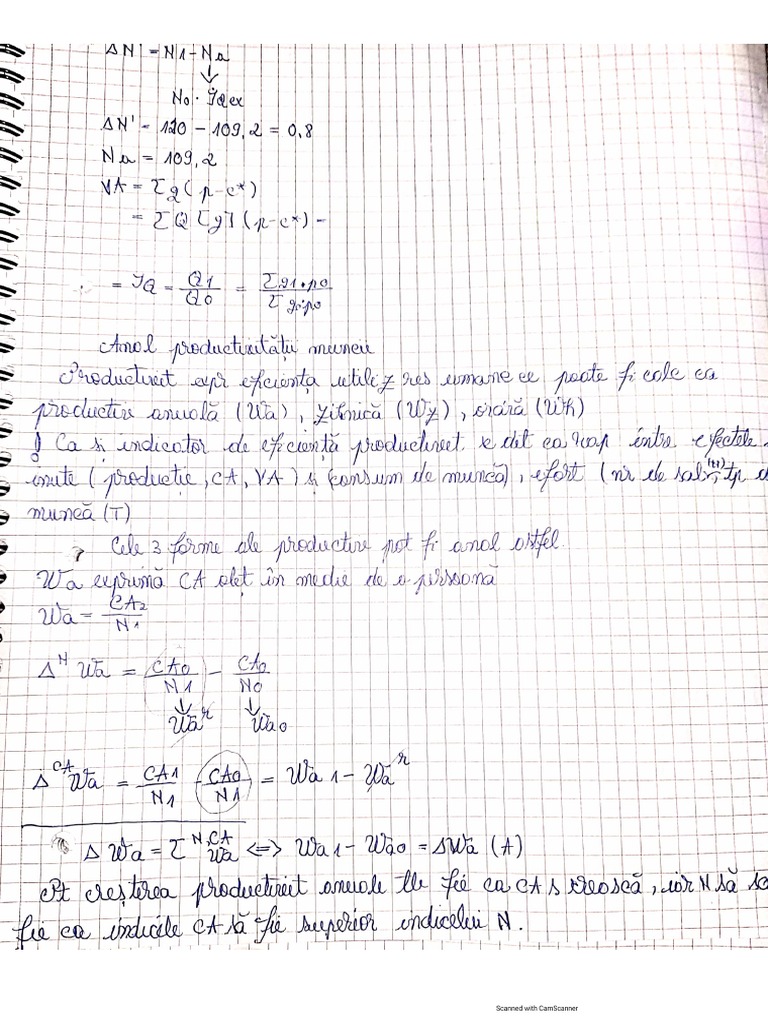 ΔN' = N1 - Na
↓
No · IQex
ΔN' = 110 - 109,2 = 0,8
Na = 109,2
VA = Σq(p-c*)
= ΣQ [g] (p-c*) -
= IQ = Q1/Q0 = Σq1·p0/Σq0·p0
Anal productivității muncii
Productivit expr eficiența utiliz res umane ce poate fi calc ca
productiv anuală (Wa), zilnică (Wz), orară (Wh)
! Ca și indicator de eficiență productivit. se det ca rap între efectele
inute (producție, CA, VA) și (consum de muncă), efort (nr de sal (N),
muncă (T)
Cele 3 forme ale productiv pot fi anal astfel.
Wa exprimă CA obț în medie de o persoană
Wa = CA2/N1
Δᴺ Wa = CA0/N1 - CA0/N0
↓ ↓
Waʳ Wa0
Δᶜᴬ Wa = CA1/N1 - CA0/N1 = Wa1 - Waʳ
Δ Wa = Σ ᴺ,ᶜᴬ Wa <=> Wa1 - Wa0 = ΔWa (A)
Pt creșterea productivit anuale tb fie ca CA s crească, iar N să sc
fie ca indicele CA să fie superior indicelui N.
Scanned with CamScanner